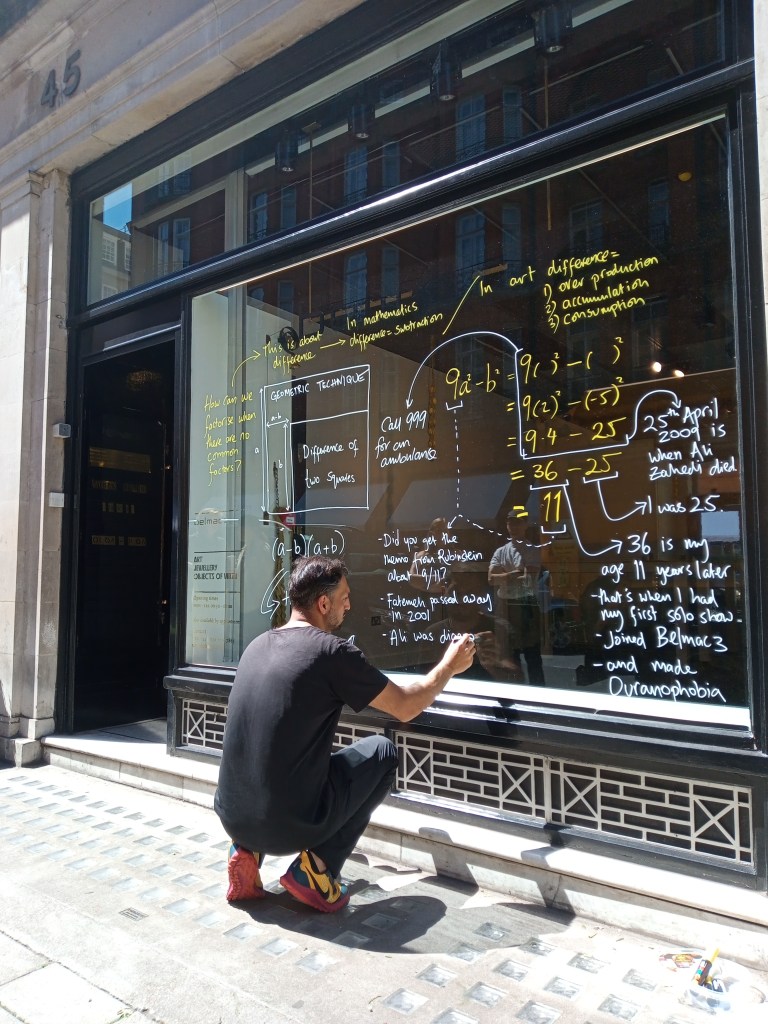 45
In art difference =
1) over production
2) accumulation
3) consumption
In mathematics
difference = subtraction
This is about
difference
How can we
factorise when
there are no
common
factors?
GEOMETRIC TECHNIQUE
a-b
a
b
Difference of
two squares
(a-b)(a+b)
Call 999
for an
ambulance
9a²-b² = 9( )² - ( )²
= 9(2)² - (-5)²
= 9·4 - 25
= 36 - 25
= 11
25th April
2009 is
when Ali
Zahedi died
I was 25.
36 is my
age 11 years later
-that's when I had
my first solo show.
- Joined Belmacz
- and made
Ouranophobia
- Did you get the
memo from Rubinstein
about 9/11?
- Fatemeh passed away
in 2001
- Ali was diagn
belmac
ART
JEWELLERY
OBJECTS OF